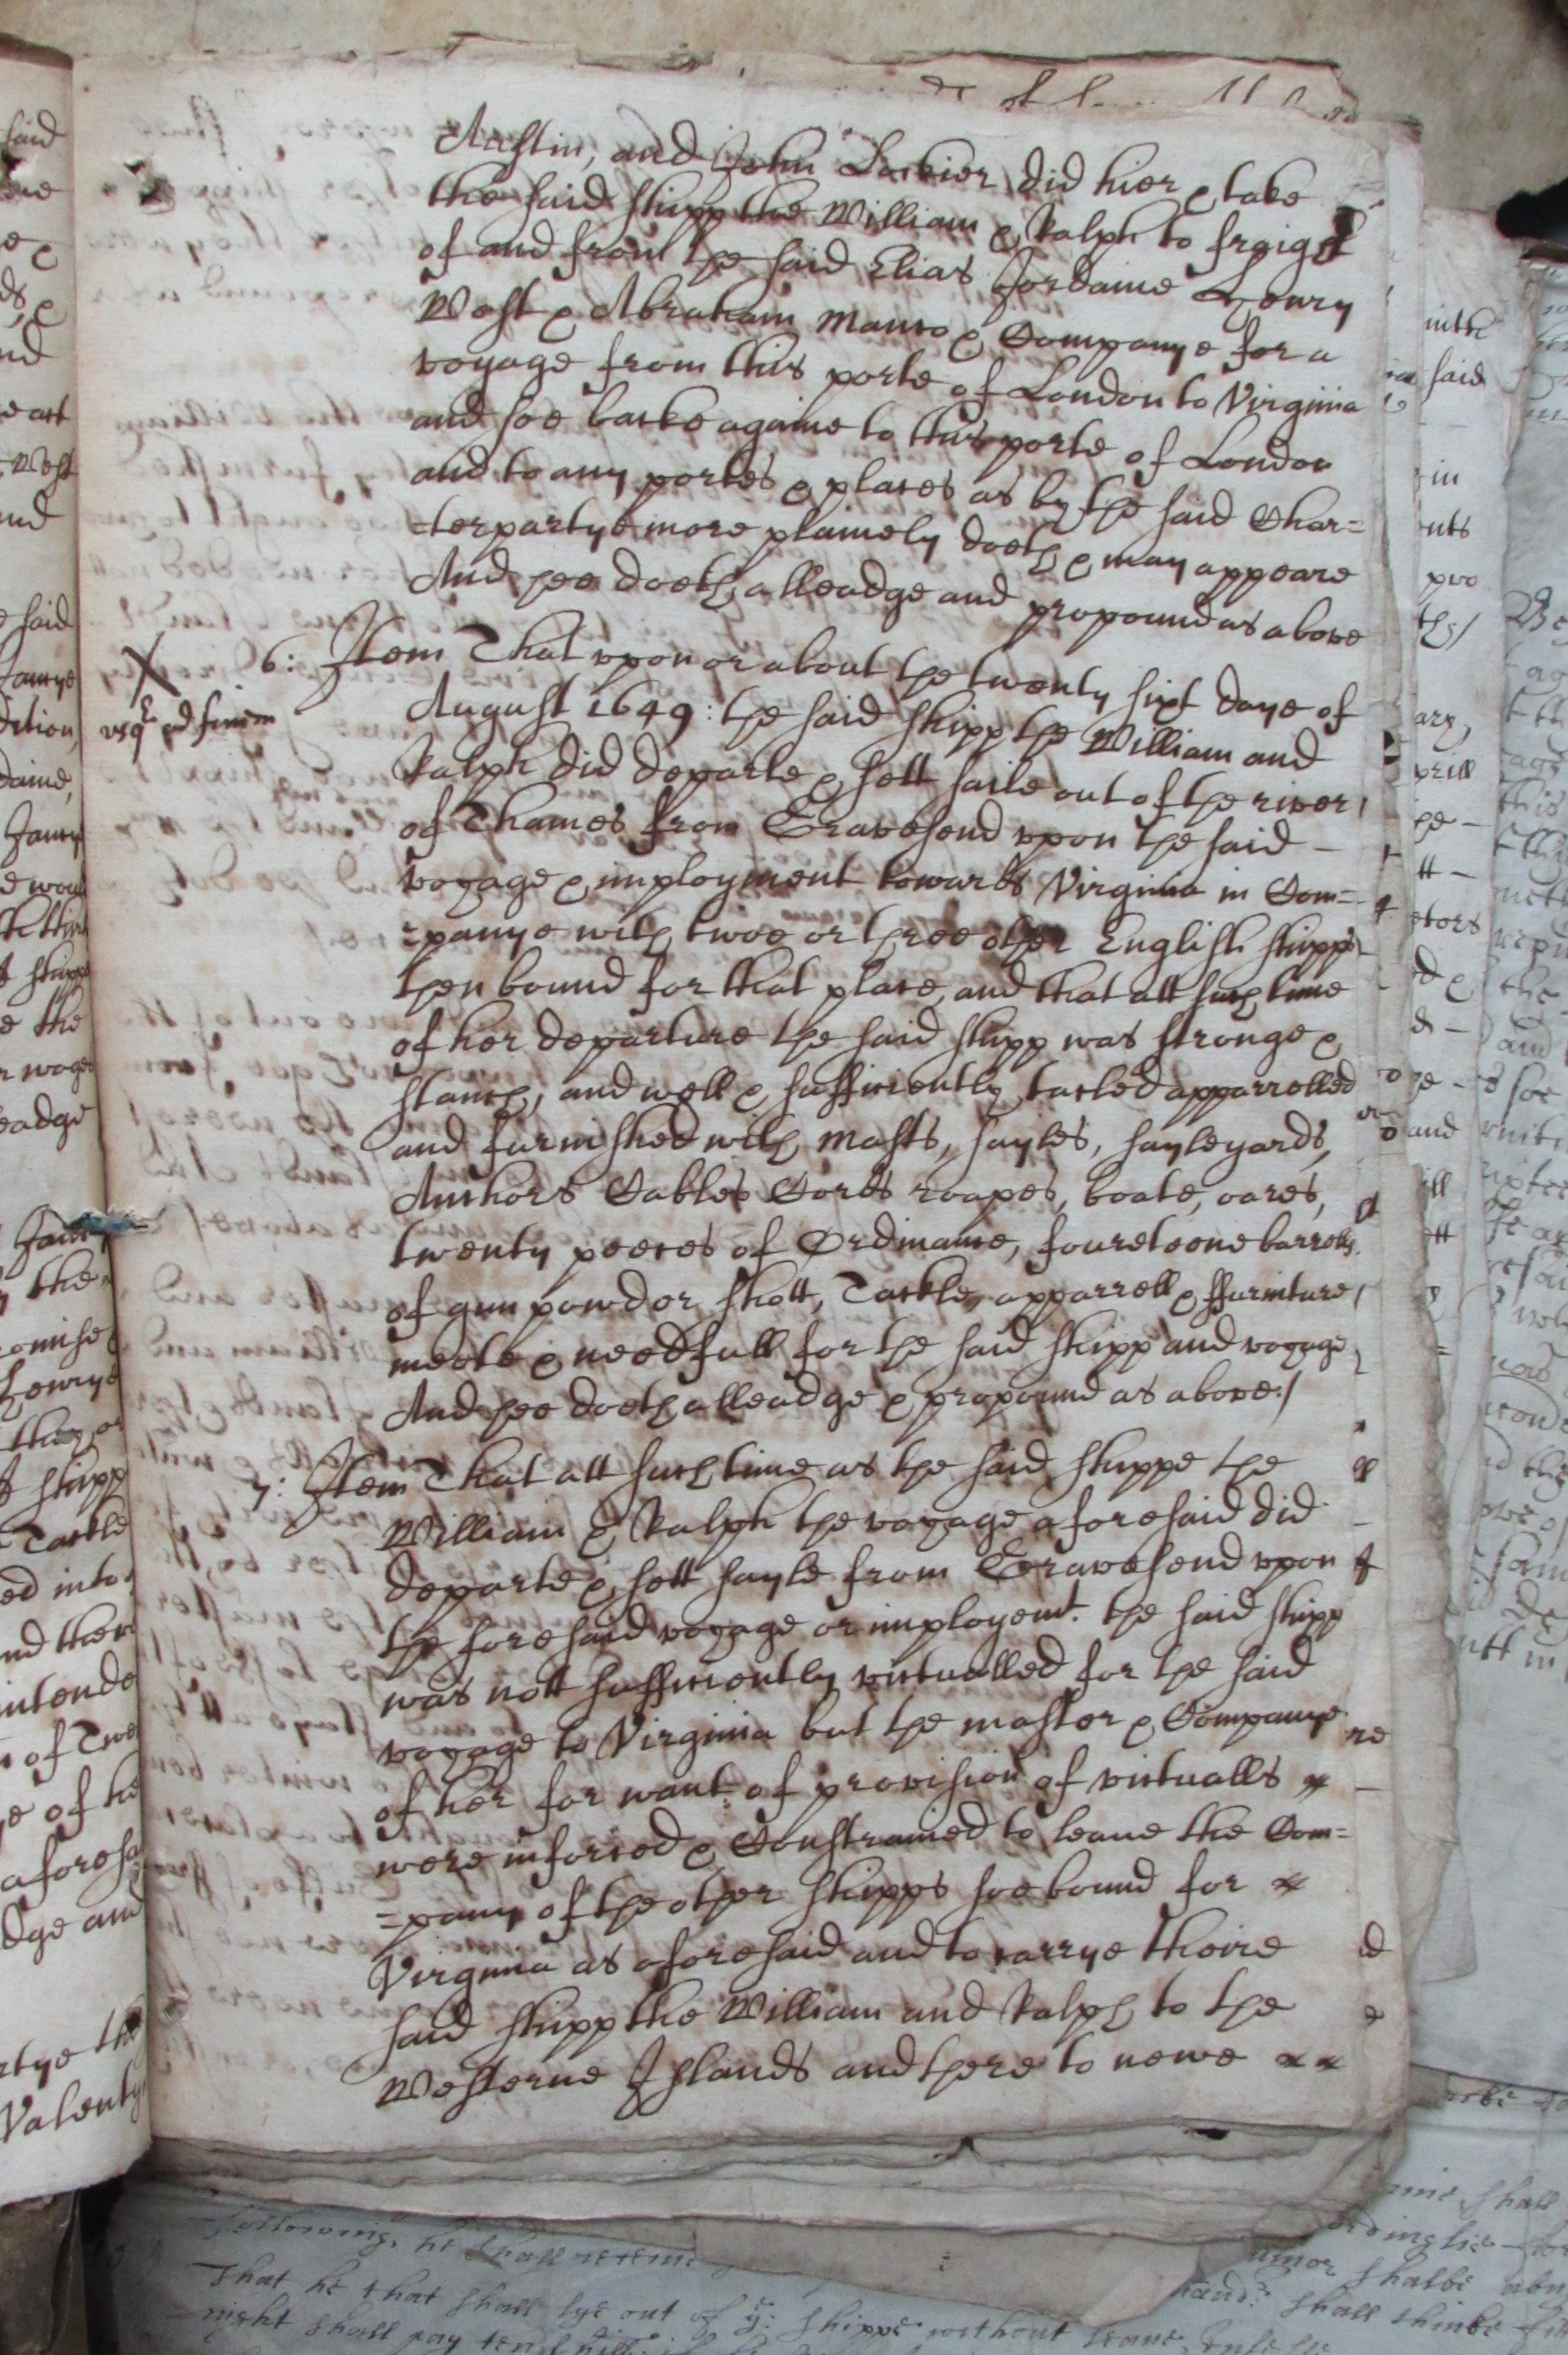 Austin, and John Lockier did hier & take
the said shipp the William & Ralph to fraight
of and from the said Elias Jordaine Henry
West & Abraham Manto & Companye for a
voyage from this porte of London to Virginia
and soe backe againe to this porte of London
and to any portes & places as by the said Char=
=terpartye more plainely doeth & may appeare
And hee doeth alleadge and propound as above
X
usq ad finem
6: Item That upon or about the twenty sixt daye of
August 1649: the said shipp the William and
Ralph did departe & sett saile out of the river
of Thames from Gravesend upon the said –
voyage & imployment towards Virginia in Com=
=panye with twoe or three other English shipps
then bound for that place, and that att such time
of her departure the said shipp was stronge &
stanch, and well & sufficiently tacled apparrelled
and furnished with Masts, sayles, sayleyards,
Anchors Cables Cords roapes, boate, oares,
twenty peeces of Ordinance, foureteene barrells
of gun powder shott, Tackle, apparrell & ffurniture
meete & needfull for the said shipp and voyage
And hee doeth alleadge & propound as above./
7: Item That att such time as the said shippe the
William & Ralph the voyage aforesaid did
departe & sett sayle from Gravesend upon
the foresaid voyage or imployemt. the said shipp
was nott sufficiently victualled for the said
voyage to Virginia but the master & Companye
of her for want of provision of victualls
were inforced & Constrained to leave the Com=
=pany of the other shipps soe bound for
Virginia as aforesaid and to carrye theire
said shipp the William and Ralph to the
Westerne Islands and there to newe
following, he shall receive
That he that shall lye out of ye: shippe without leave
night shall pay ten shill